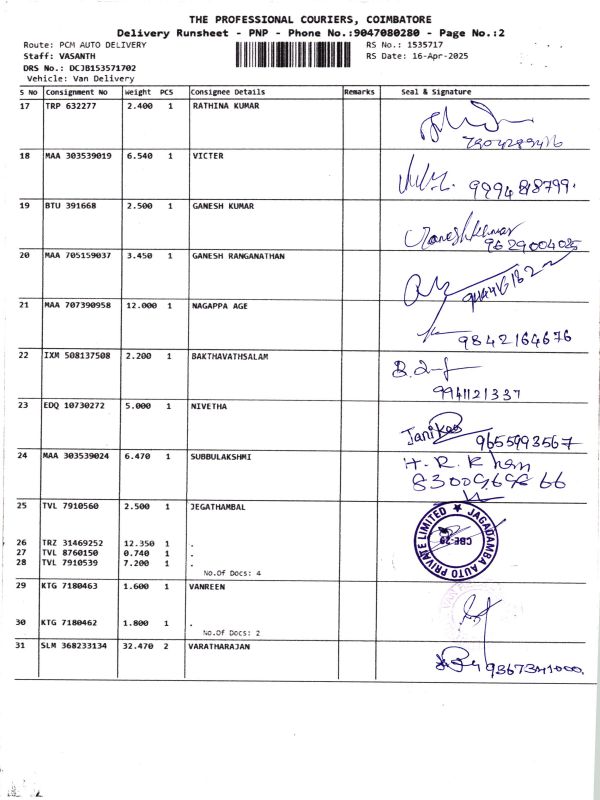 THE PROFESSIONAL COURIERS, COIMBATORE
Delivery Runsheet - PNP - Phone No.:9047080280 - Page No.:2
Route: PCM AUTO DELIVERY RS No.: 1535717
Staff: VASANTH RS Date: 16-Apr-2025
DRS No.: DCJB153571702
Vehicle: Van Delivery
S No Consignment No Weight PCS Consignee Details Remarks Seal & Signature
17 TRP 632277 2.400 1 RATHINA KUMAR
18 MAA 303539019 6.540 1 VICTER
19 BTU 391668 2.500 1 GANESH KUMAR
Ganeshkumar
9629004025
20 MAA 705159037 3.450 1 GANESH RANGANATHAN
21 MAA 707390958 12.000 1 NAGAPPA AGE
9842164676
22 IXM 508137508 2.200 1 BAKTHAVATHSALAM
9941121337
23 EDQ 10730272 5.000 1 NIVETHA
9655993567
24 MAA 303539024 6.470 1 SUBBULAKSHMI
H. R. Khan
25 TVL 7910560 2.500 1 JEGATHAMBAL
JAGADAMBA AUTO PRIVATE LIMITED
CBE-29
26 TRZ 31469252 12.350 1 .
27 TVL 8760150 0.740 1 .
28 TVL 7910539 7.200 1 .
No.Of Docs: 4
29 KTG 7180463 1.600 1 VANREEN
30 KTG 7180462 1.800 1 .
No.Of Docs: 2
31 SLM 368233134 32.470 2 VARATHARAJAN
9367341000.